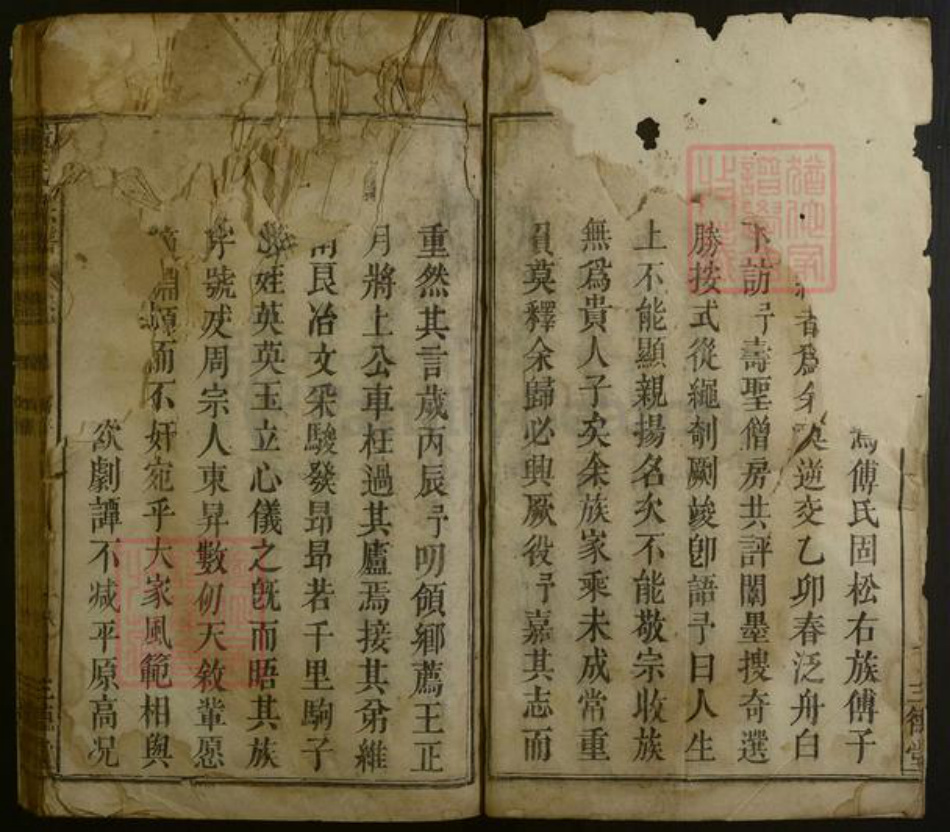 為傅氏固松右族傅子
者爲余莫逆交乙卯春泛舟白
下訪予壽聖僧房共評闈墨搜奇選
勝按式從繩剞劂竣卽語予曰人生
上不能顯親揚名次不能敬宗收族
無爲貴人子矣余族家乘未成常重
負莫釋余歸必興厥役予嘉其志而
重然其言歲丙辰予叨領鄉薦王正
月將上公車枉過其廬焉接其弟維
艮冶文采駿發昂昂若千里駒子
姪英英玉立心儀之旣而晤其族
號成周宗人東昇數仞天敘輩愿
而不奸宛乎大家風範相與
欲劇譚不减平原高况